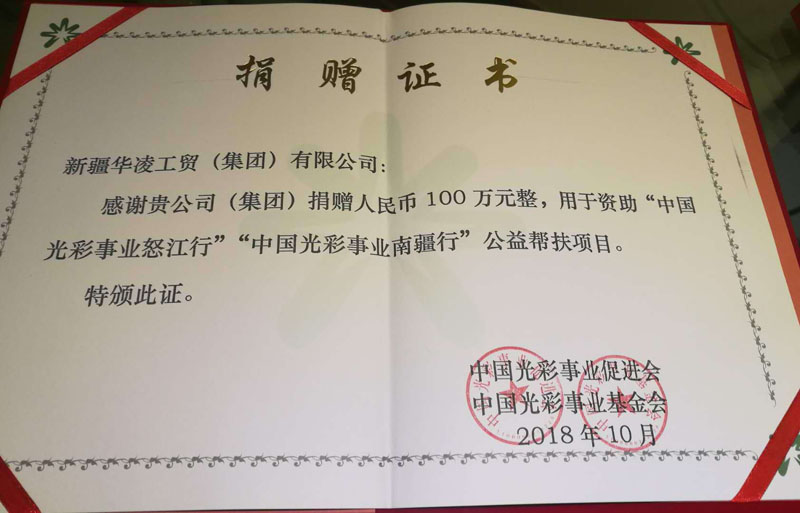 捐赠证书
新疆华凌工贸（集团）有限公司：
感谢贵公司（集团）捐赠人民币 100 万元整，用于资助“中国
光彩事业怒江行”“中国光彩事业南疆行”公益帮扶项目。
特颁此证。
中国光彩事业促进会
中国光彩事业基金会
2018 年 10 月